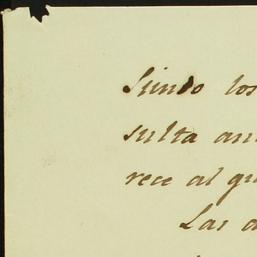 Siendo los
sulta an
rece al qu
Las